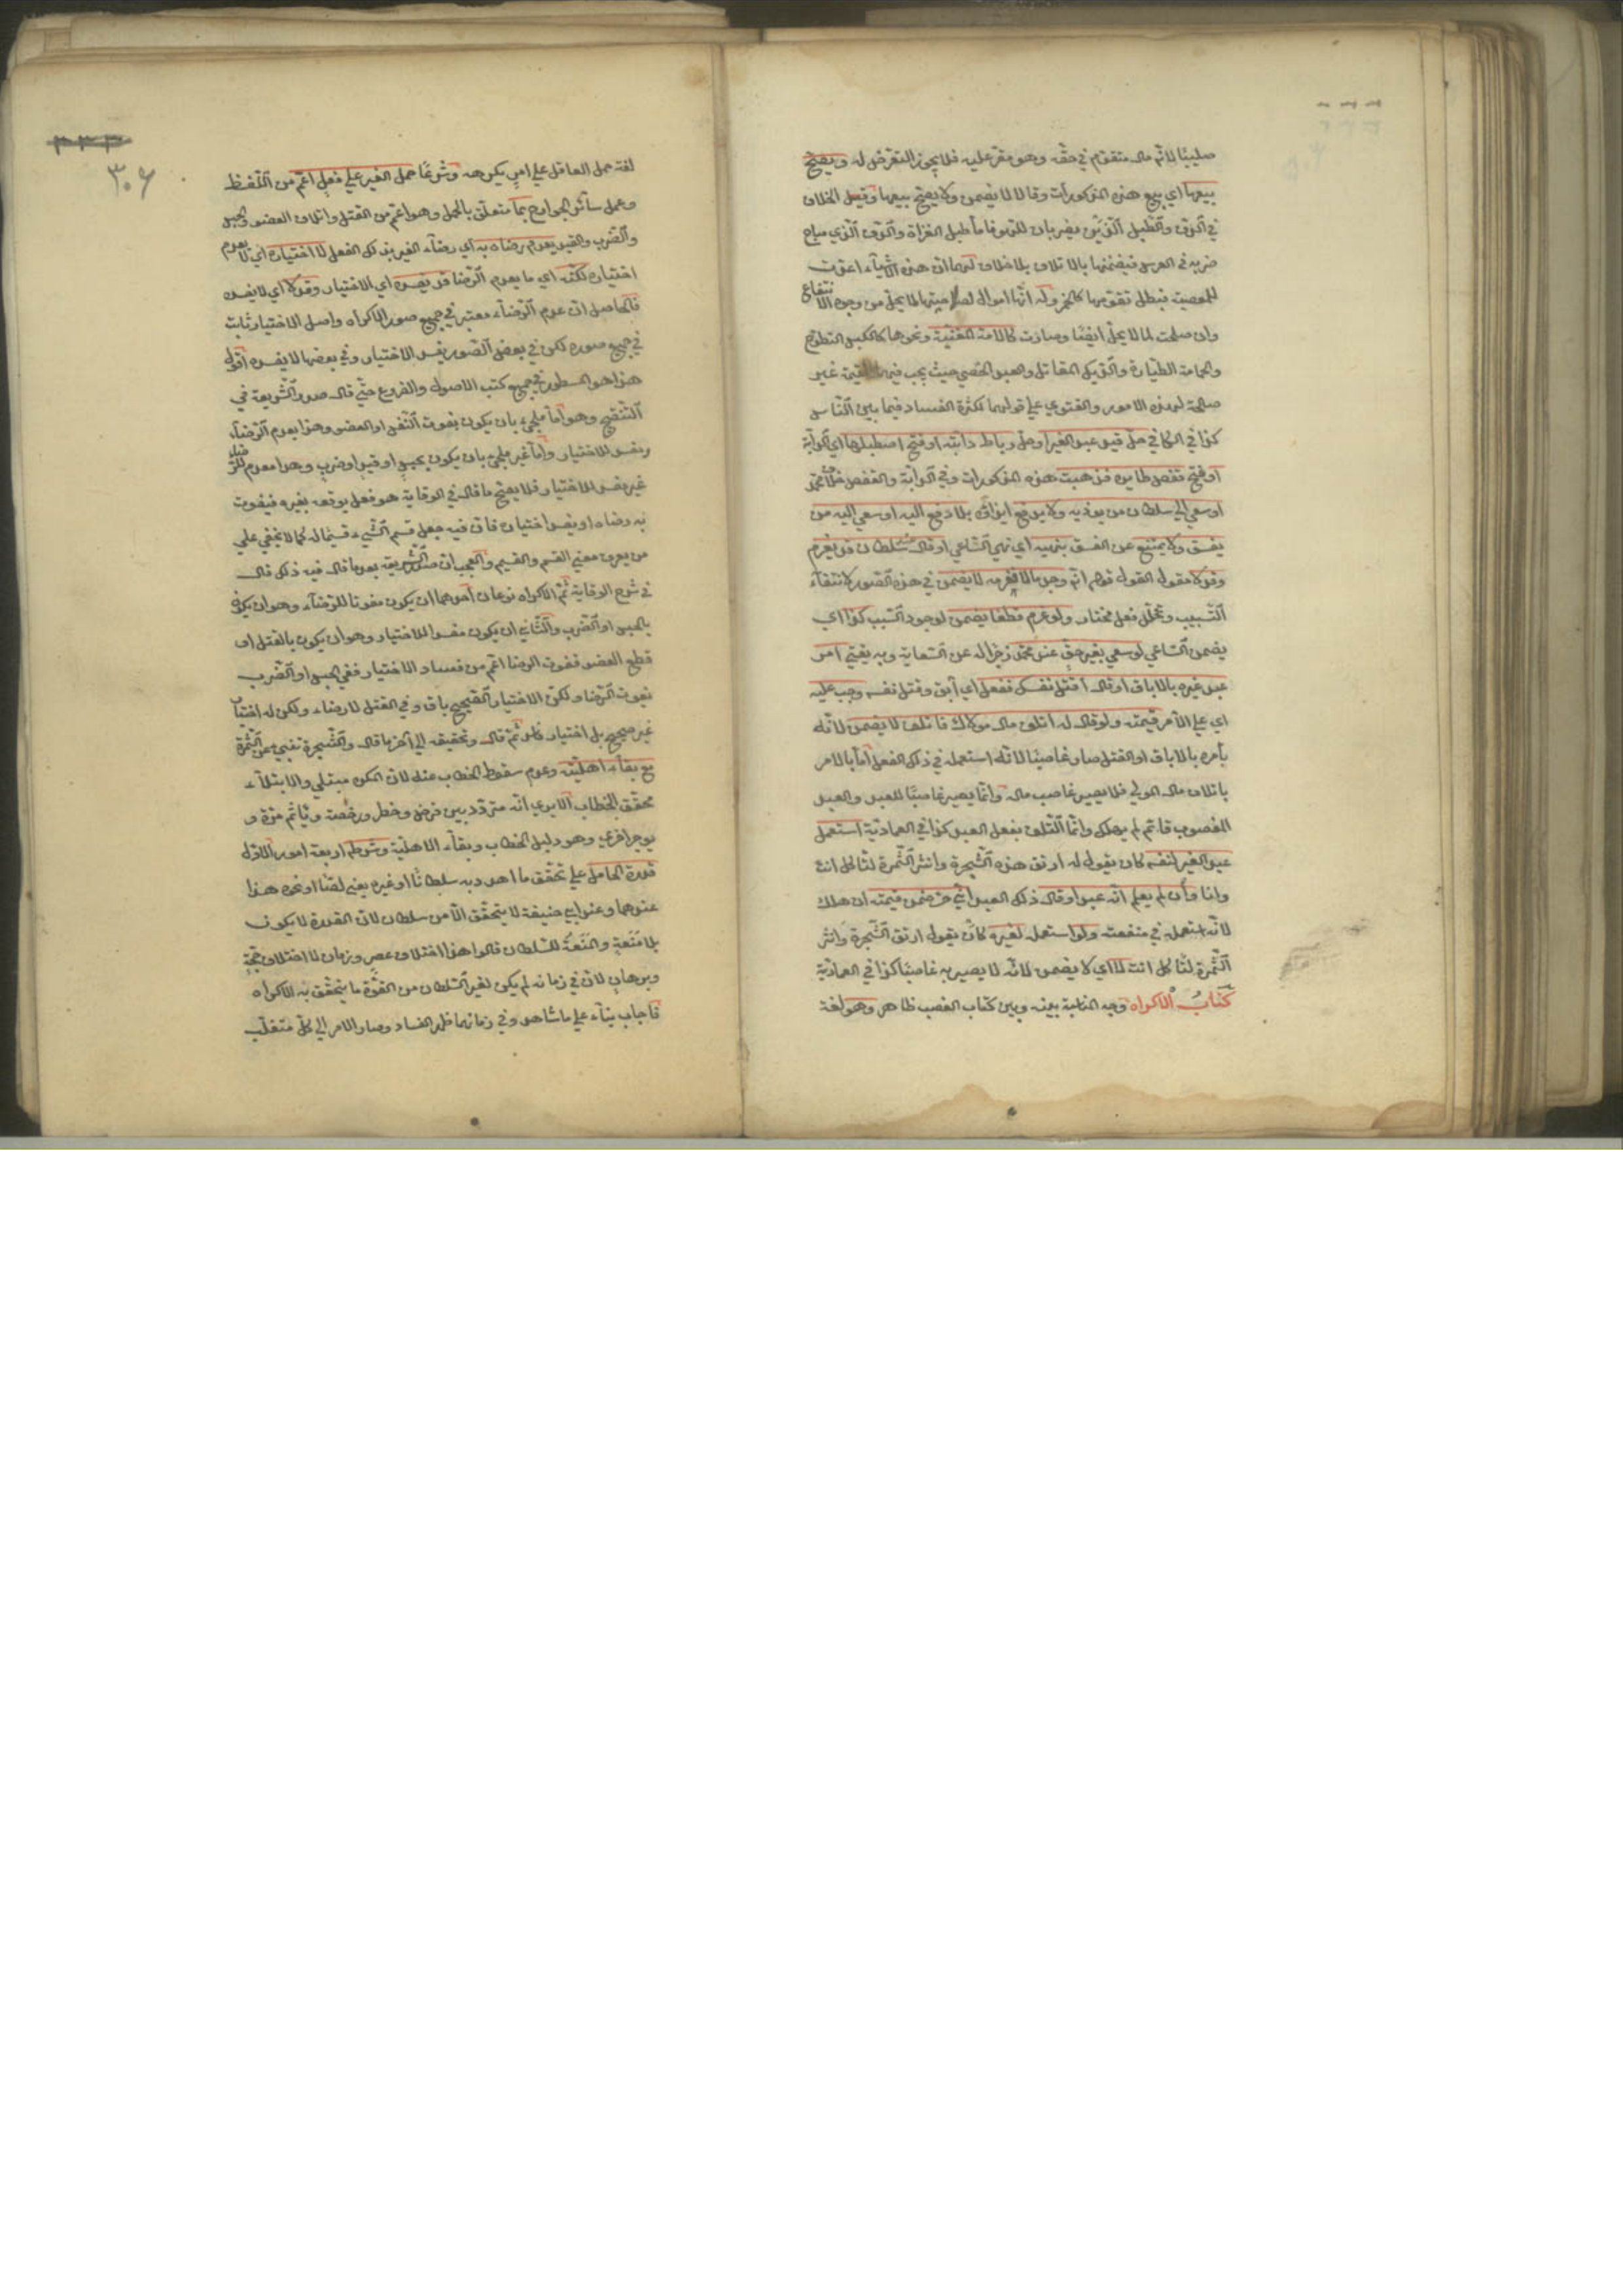 صليبًا لانّه مال متقوّم في حقّه وهو مقرّ عليه فلا يجوز التعرّض له ويصحّ
بيعها اي بيع هذه المذكورات وقالا لا يضمن ولا يصحّ بيعها وقيل الخلاف
في الدّفّ والطّبل الّذي يضربان للهو فاما طبل الغزاة والدّفّ الّذي مباح
ضربه في العرس فيضمنها بالاتلاف بلا خلاف لهما ان هذه الاشياء اعدّت
للمعصية فبطل تقومها كالخمر وله انّها اموال لصلاحيتها لما يحلّ من وجوه الانتفاع
وان صلحت لما لا يحلّ ايضًا وصارت كالامة المغنّية ونحوها كالكبش النطوح
والحمامة الطيّارة والدّيك المقاتل والعبد الخصي حيث يجب فيها القيمة غير
صالحة لهذه الامور والفتوي علي قولهما لكثرة الفساد فيما بين النّاس
كذا في الكافي حلّ قيد عبد الغير او حلّ رباط دابّته او فتح اصطبلها اي الدّابّة
او فتح قفص طايره فذهبت هذه المذكورات وفي الدّابّة والقفص خلاف محمّد
او سعي الي سلطان من يوذيه ولا يدفع ايذاؤه بلا دفع اليه او سعي اليه من
يفسق ولا يمتنع عن الفسق بنهيه اي نهي السّاعي او قال سلطان قد يغرم
وقد لا مقول القول قوله انّه وجد مالا فغرمه لا يضمن في هذه الصّور لانتفاء
التّسبيب وتخلّل فعل مختار ولو غرم قطعا يضمن لوجود السّبب كذا اي
يضمن السّاعي لو سعي بغير حقّ عند محمّد زجرا له عن السّعاية وبه يفتي امر
عبد غيره بالاباق او قال اقتل نفسك ففعل اي أبق وقتل نفسه وجب عليه
اي علي الآمر قيمته ولو قال له اتلف مال مولاك فاتلف لا يضمن لانّه
بأمره بالاباق او القتل صار غاصبًا لانّه استعمله في ذلك الفعل امّا بالامر
باتلاف مال المولي فلا يصير غاصب ماله وانّما يصير غاصبًا للعبد والعبد
المغصوب قائم لم يهلك وانّما التّلف بفعل العبد كذا في العماديّة استعمل
عبد الغير لنفسه كان يقول له ارتق هذه الشّجرة وانثر الثّمرة لتأكل انت
وانا وأن لم يعلم انّه عبد او قال ذلك العبد انّي حرّ ضمن قيمته ان هلك
لانّه استعمله في منفعته ولو استعمله لغيره كان يقول ارتق الشّجرة وانثر
الثّمرة لتأكل انت لا اي لا يضمن لانّه لا يصير به غاصبًا كذا في العماديّة
كتاب الاكراه وجه المناسبة بينه وبين كتاب الغصب ظاهر وهو لغة
٣٠٦
لغة حمل العاقل علي امر يكرهه وشرعًا حمل الغير علي فعل اعمّ من اللّفظ
وعمل سائر الجوارح بما متعلّق بالحمل وهو اعمّ من القتل واتلاف العضو والحبس
والضّرب والقيد يعدم رضاه به اي رضاء الغير بذلك الفعل لا اختياره اي لا يعدم
اختياره لكنّه اي ما يعدم الرّضا قد يفسده اي الاختيار وقد لا اي لا يفسده
فالحاصل انّ عدم الرّضاء معتبر في جميع صور الاكراه واصل الاختيار ثابت
في جميع صوره لكن في بعض الصّور يفسد الاختيار وفي بعضها لا يفسده اقول
هذا هو المسطور في جميع كتب الاصول والفروع حتّي قال صدر الشّريعة في
التّنقيح وهو امّا ملجيء بان يكون بفوت النّفس او العضو وهذا يعدم الرّضاء
ويفسد الاختيار وامّا غير ملجئ بان يكون بحبس او قيد او ضرب وهذا معدم للرّضاء
غير مفسد للاختيار فلا يصحّ ما قال في الوقاية هو فعل يوقعه بغيره فيفوت
به رضاه او يفسد اختياره فانّ فيه جعل قسم الشّيء قسيمًا له كما لا يخفي علي
من يعرف معني القسم والقسيم والعجب انّ صدر الشّريعة بعد ما قال فيه ذلك قال
في شرح الوقاية ثمّ الاكراه نوعان احدهما ان يكون مفوتا للرّضاء وهو ان يكون
بالحبس او الضّرب والثّاني ان يكون مفسدا للاختيار وهو ان يكون بالقتل او
قطع العضو ففوت الرضا اعمّ من فساد الاختيار ففي الحبس او الضّرب
يفوت الرّضا ولكنّ الاختيار الصّحيح باق وفي القتل لا رضاء ولكن له اختيار
غير صحيح بل اختيار فاسد ثمّ قال وتحقيقه الي آخر ما قال والشّجرة تنبئ عن الثّمرة
مع بقاء اهليّته وعدم سقوط الخطاب عنه لانّ المكره مبتلي والابتلاء
تحقّق الخطاب الا يري انّه متردّد بين فرض وحظر ورخصة ويأثم مرّة و
يوجر اخري وهو دليل الخطاب وبقاء الاهليّة وشرطه اربعة امور الاوّل
قدرة الحامل علي تحقّق ما هدد به سلطانًا او غيره يعني لصّا او نحوه هذا
عندهما وعند ابي حنيفة لا يتحقّق الّا من سلطان لانّ القدرة لا يكون
بلا مَنَعة والمَنَعة للسّلطان قالوا هذا اختلاف عصر وزمان لا اختلاف حجّة
وبرهان لانّ في زمانه لم يكن لغير السّلطان من القوّة ما يتحقّق به الاكراه
فاجاب بناء علي ما شاهد وفي زمانهما ظهر الفساد وصار الامر الي كلّ متغلّب